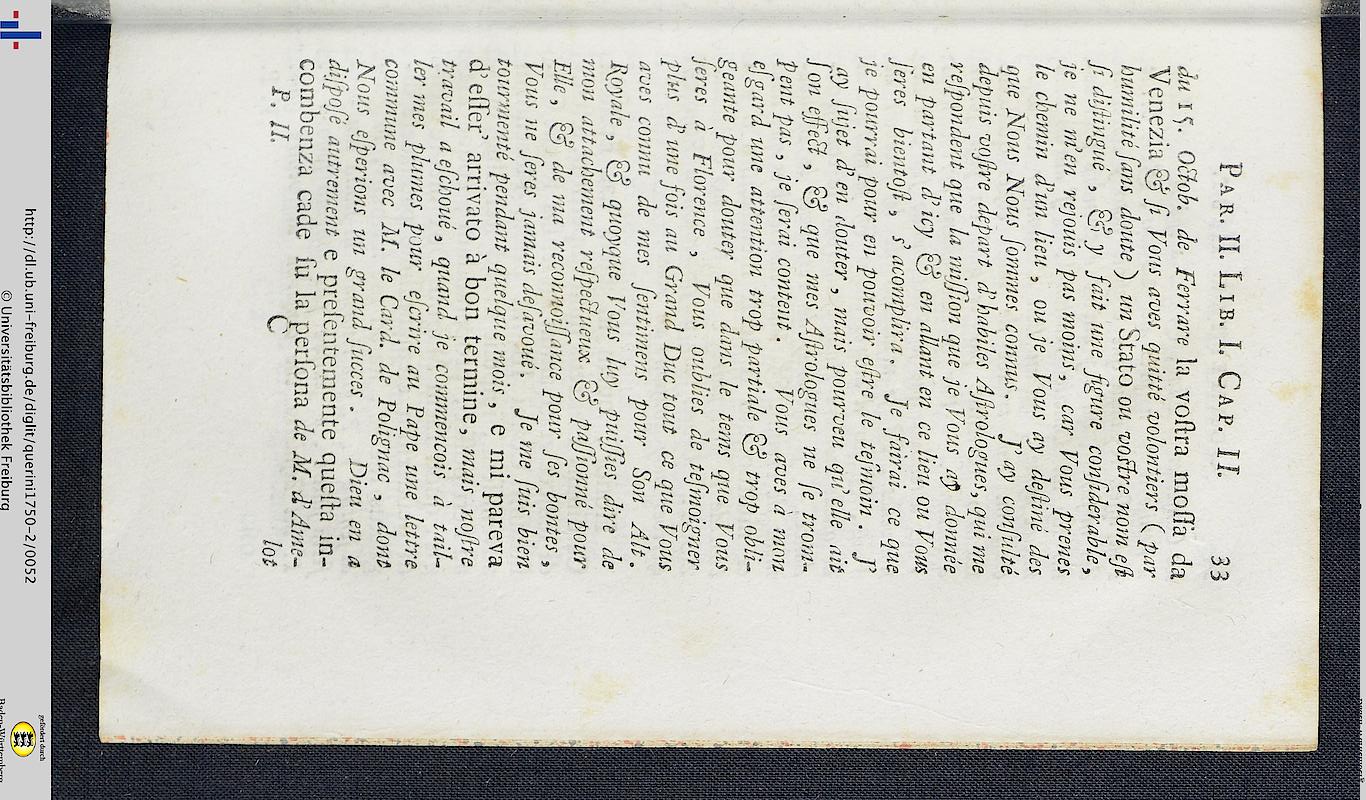 PAR. II. LIB. I. CAP. II. 33
du 15. Octob. de Ferrare la voſtra moſſa da
Venezia & ſi Vous aves quitté volontiers (par
humilité ſans doute) un Stato ou voſtre nom eſt
ſi diſtingué, & y fait une figure conſiderable,
je ne m'en rejouis pas moins, car Vous prenes
le chemin d'un lieu, ou je Vous ay deſtiné des
que Nous Nous ſommes connus. J'ay conſulté
depuis voſtre depart d'habiles Aſtrologues, qui me
reſpondent que la miſſion que je Vous ay donnée
en partant d'icy & en allant en ce lieu ou Vous
ſeres bientoſt, s'acomplira. Je fairai ce que
je pourrai pour en pouvoir eſtre le teſmoin. J'
ay ſujet d'en douter, mais pourveu qu'elle ait
ſon effect, & que mes Aſtrologues ne ſe trom-
pent pas, je ſerai content. Vous aves à mon
eſgard une attention trop partiale & trop obli-
geante pour douter que dans le tems que Vous
ſeres à Florence, Vous oublies de teſmoigner
plus d'une fois au Grand Duc tout ce que Vous
aves connu de mes ſentimens pour Son Alt.
Royale, & quoyque Vous luy puiſſies dire de
mon attachement reſpectueux & paſſionné pour
Elle, & de ma reconnoiſſance pour ſes bontes,
Vous ne ſeres jamais deſavoué. Je me ſuis bien
tourmenté pendant quelque mois, e mi pareva
d'eſſer' arrivato à bon termine, mais noſtre
travail a eſchoué, quand je commencois à tail-
ler mes plumes pour eſcrire au Pape une lettre
commune avec M. le Card. de Polignac, dont
Nous eſperions un grand ſucces. Dieu en a
diſpoſé autrement e preſentemente queſta in-
combenza cade ſu la perſona de M. d'Ame-
P. II. C lot
http://dl.ub.uni-freiburg.de/diglit/querini1750-2/0052
© Universitätsbibliothek Freiburg
gefördert durch
Baden-Württemberg